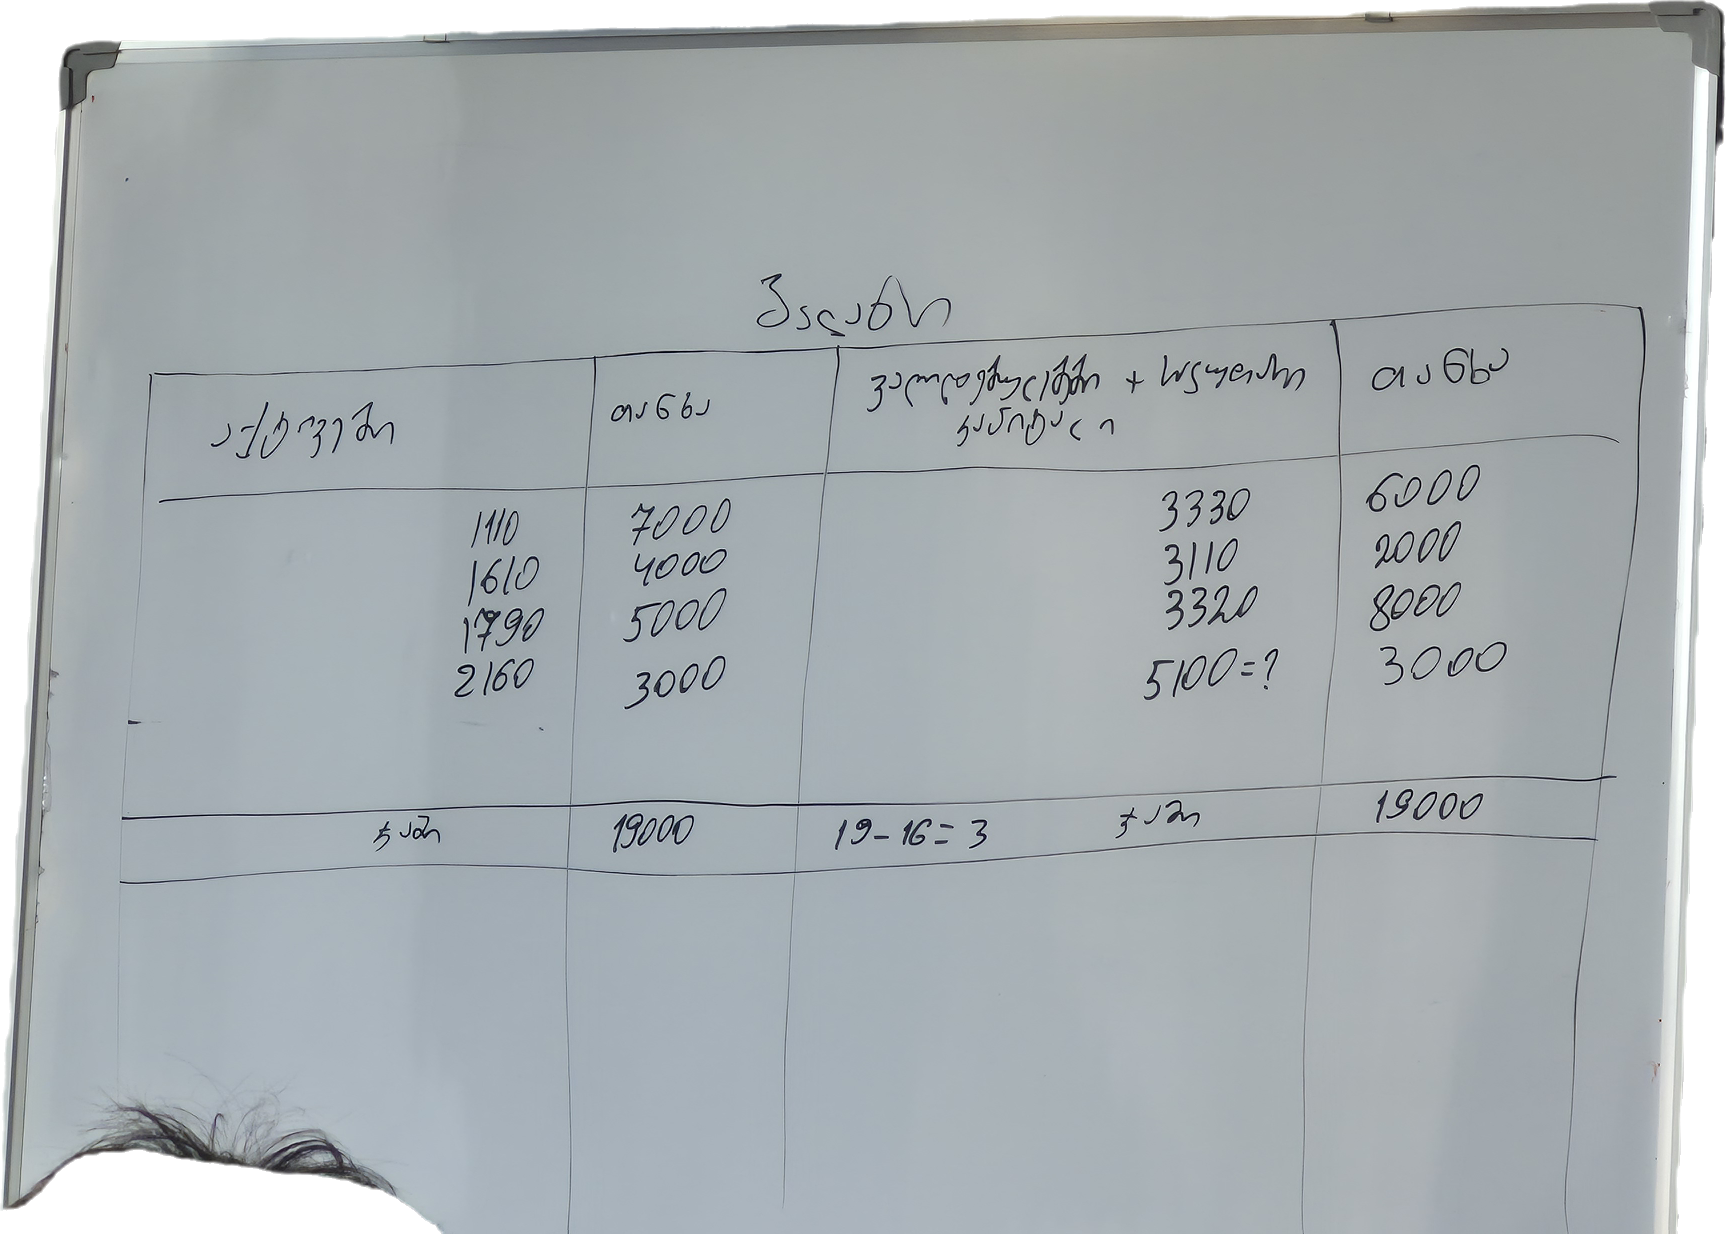 ბალანსი
აქტივები თანხა ვალდებულებები + საკუთარი კაპიტალი თანხა
1110 7000 3330 6000
1610 4000 3110 2000
1790 5000 3320 8000
2160 3000 5100=? 3000
ჯამი 19000 19-16=3 ჯამი 19000